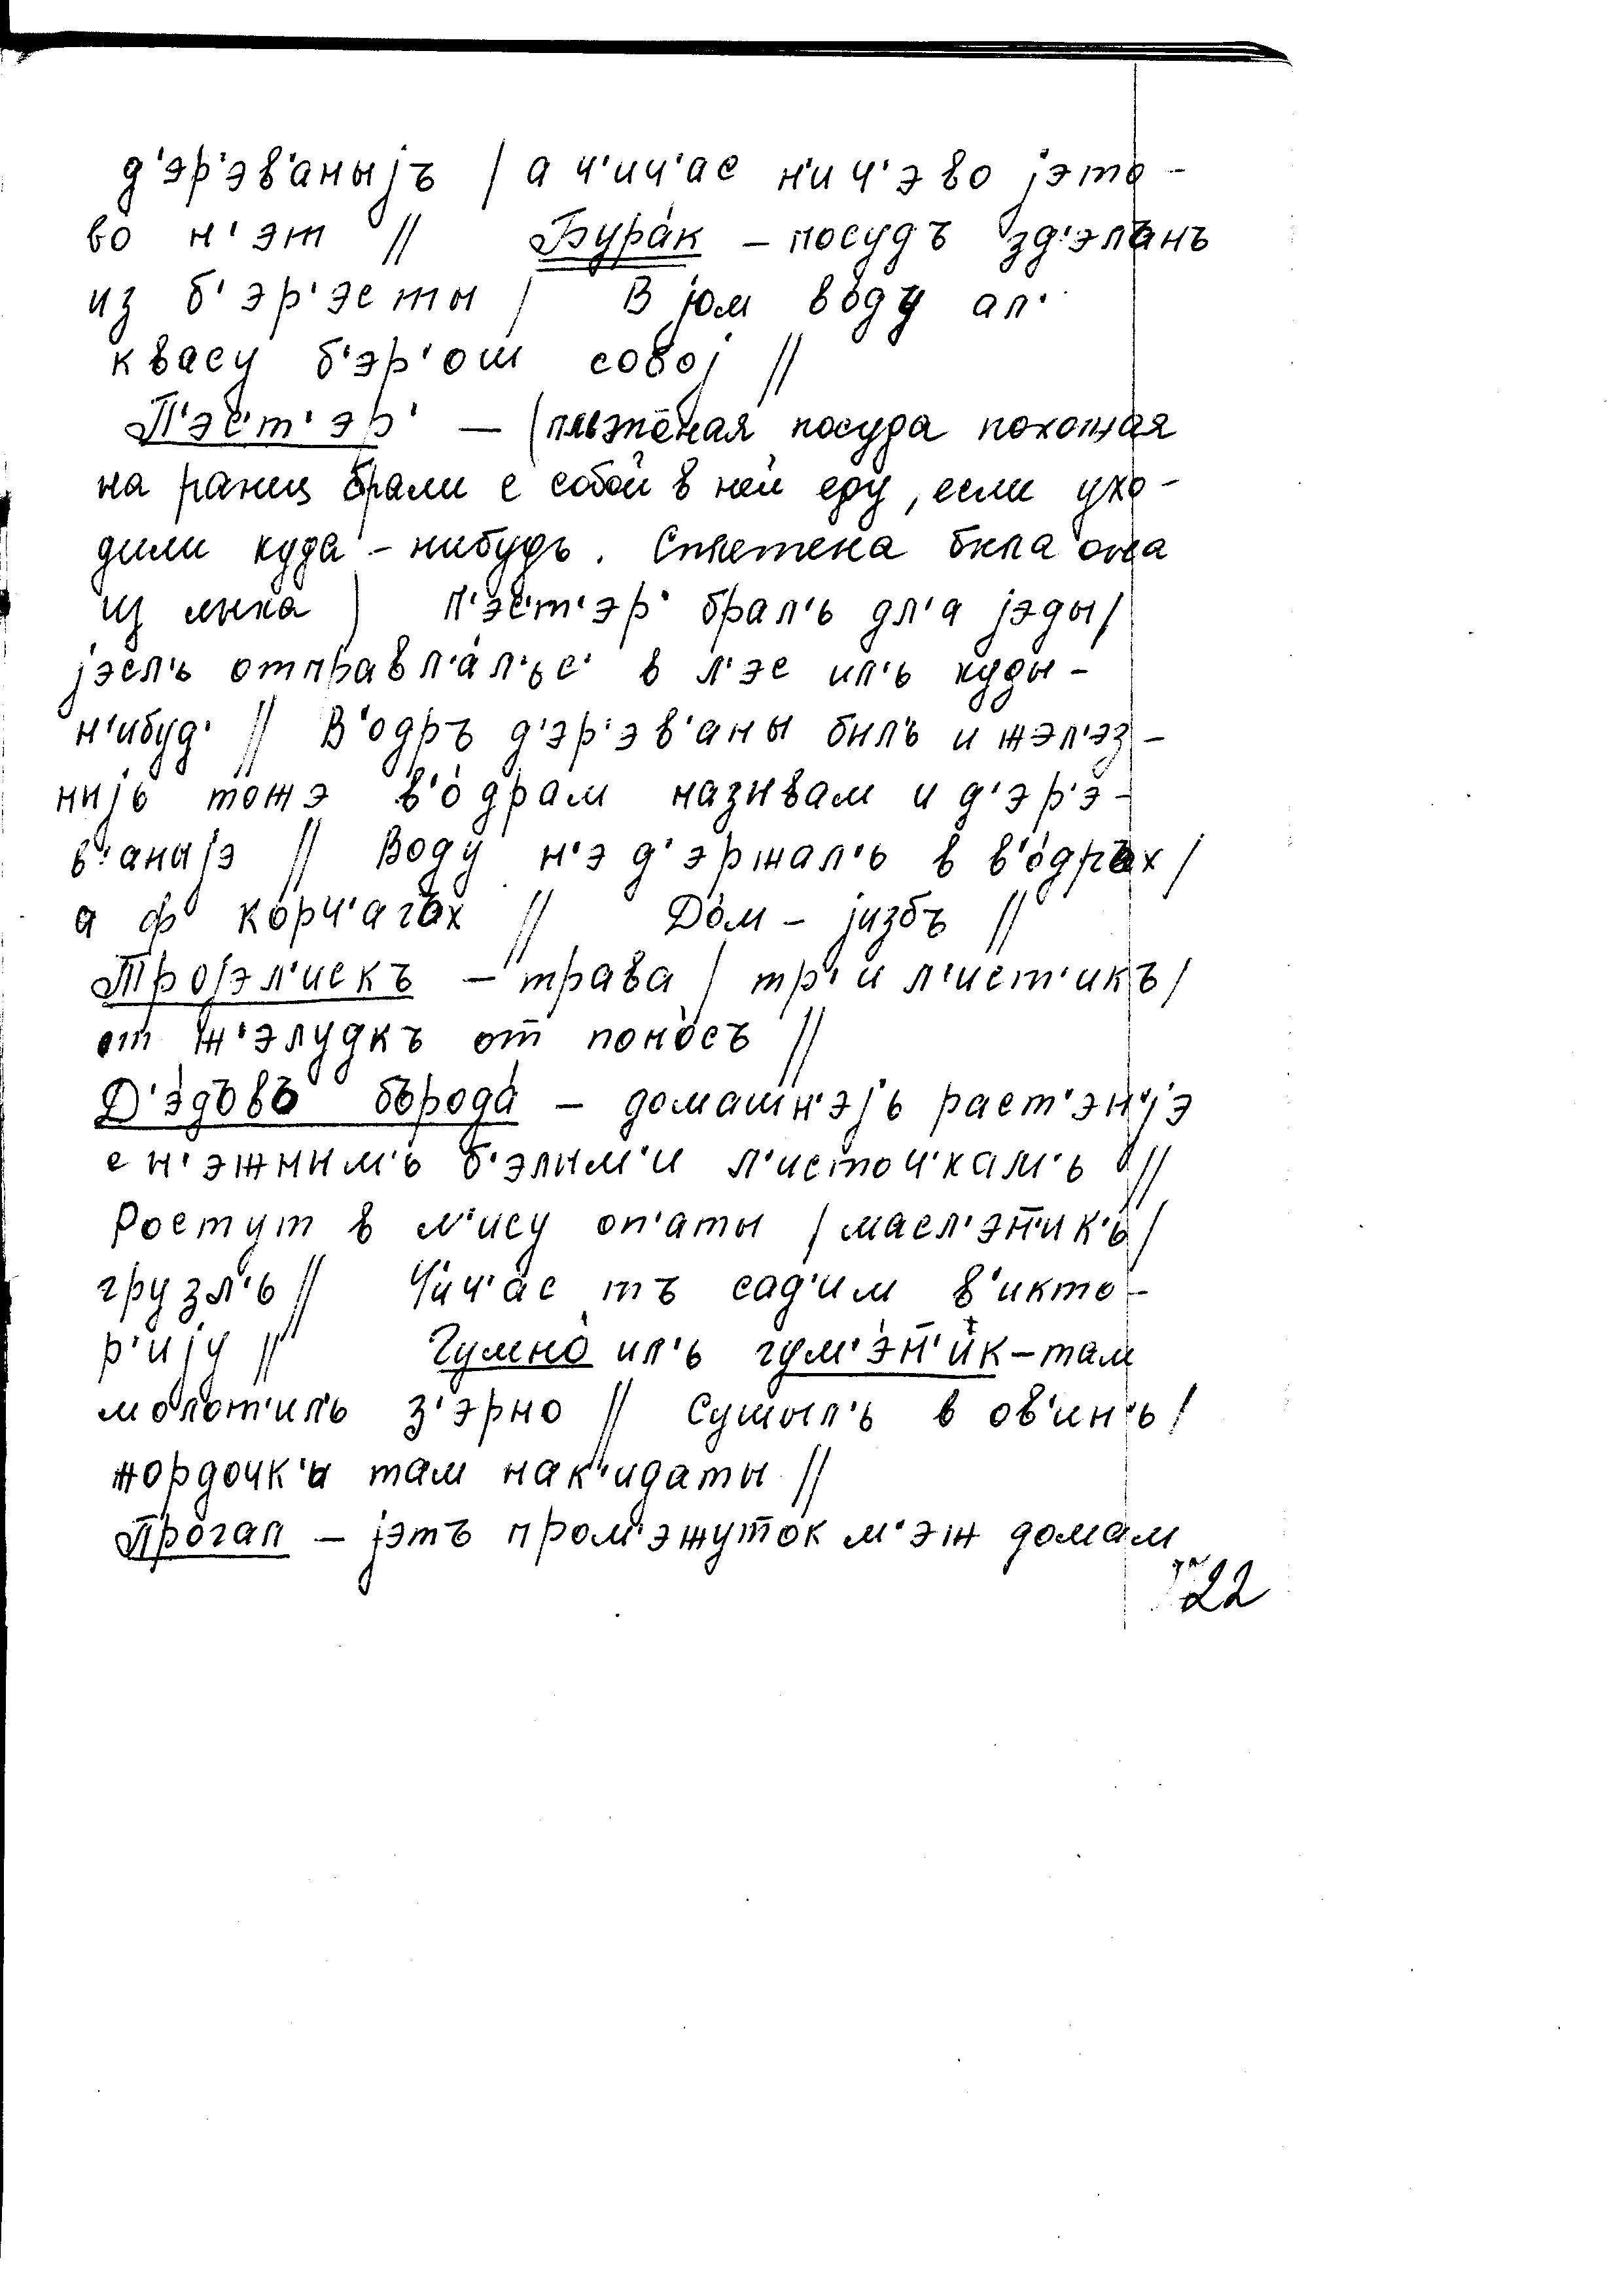 д'эр'эв'аныjъ / а ч'ич'ас н'ич'эво jэто-
во н'эт // Бура́к – посудъ зд'эланъ
из б'эр'эсты / В jом во́ду ал'
квасу б'эр'ош собоj //
П'эс'т'эр' – (плетёная посуда похожая
на ранец брали с собой в ней еду, если ухо-
дили куда-нибудь. Сплетена была она
из лыка) П'эс'т'эр' брал'ь дл'а jэды/
jэсл'ь отправл'а́л'ьс' в л'эс ил'ь куды-
н'ибуд' // В'одръ д'эр'эв'аны был'ь и жэл'эз-
ныjь тожэ в'о́драм называм и д'эр'э-
в'аныjэ // Воду н'э д'эржал'ь в в'о́драх /
а ф корч'агъх // До́м – jизбъ //
Троjэл'искъ – трава / тр'и л'ист'икъ/
от ж'элудкъ от поно́съ //
Д'э́дъвъ бърода́ – домашн'эjь раст'эн'jэ
с н'эжным'ь б'элым'и л'источ'кам'ь //
Ростут в л'ису оп'аты / масл'эн̄'ик'ь/
грузл'ь // Ч'ич'ас тъ сад'им в'икто-
р'иjу // Гумно́ ил'ь гум'э́н̄'ик – там
молот'ил'ь з'эрно // Сушыл'ь в ов'ин'ь/
жордочк'и там нак'идаты //
Прогал – jэтъ пром'эжуток м'эж домам
22